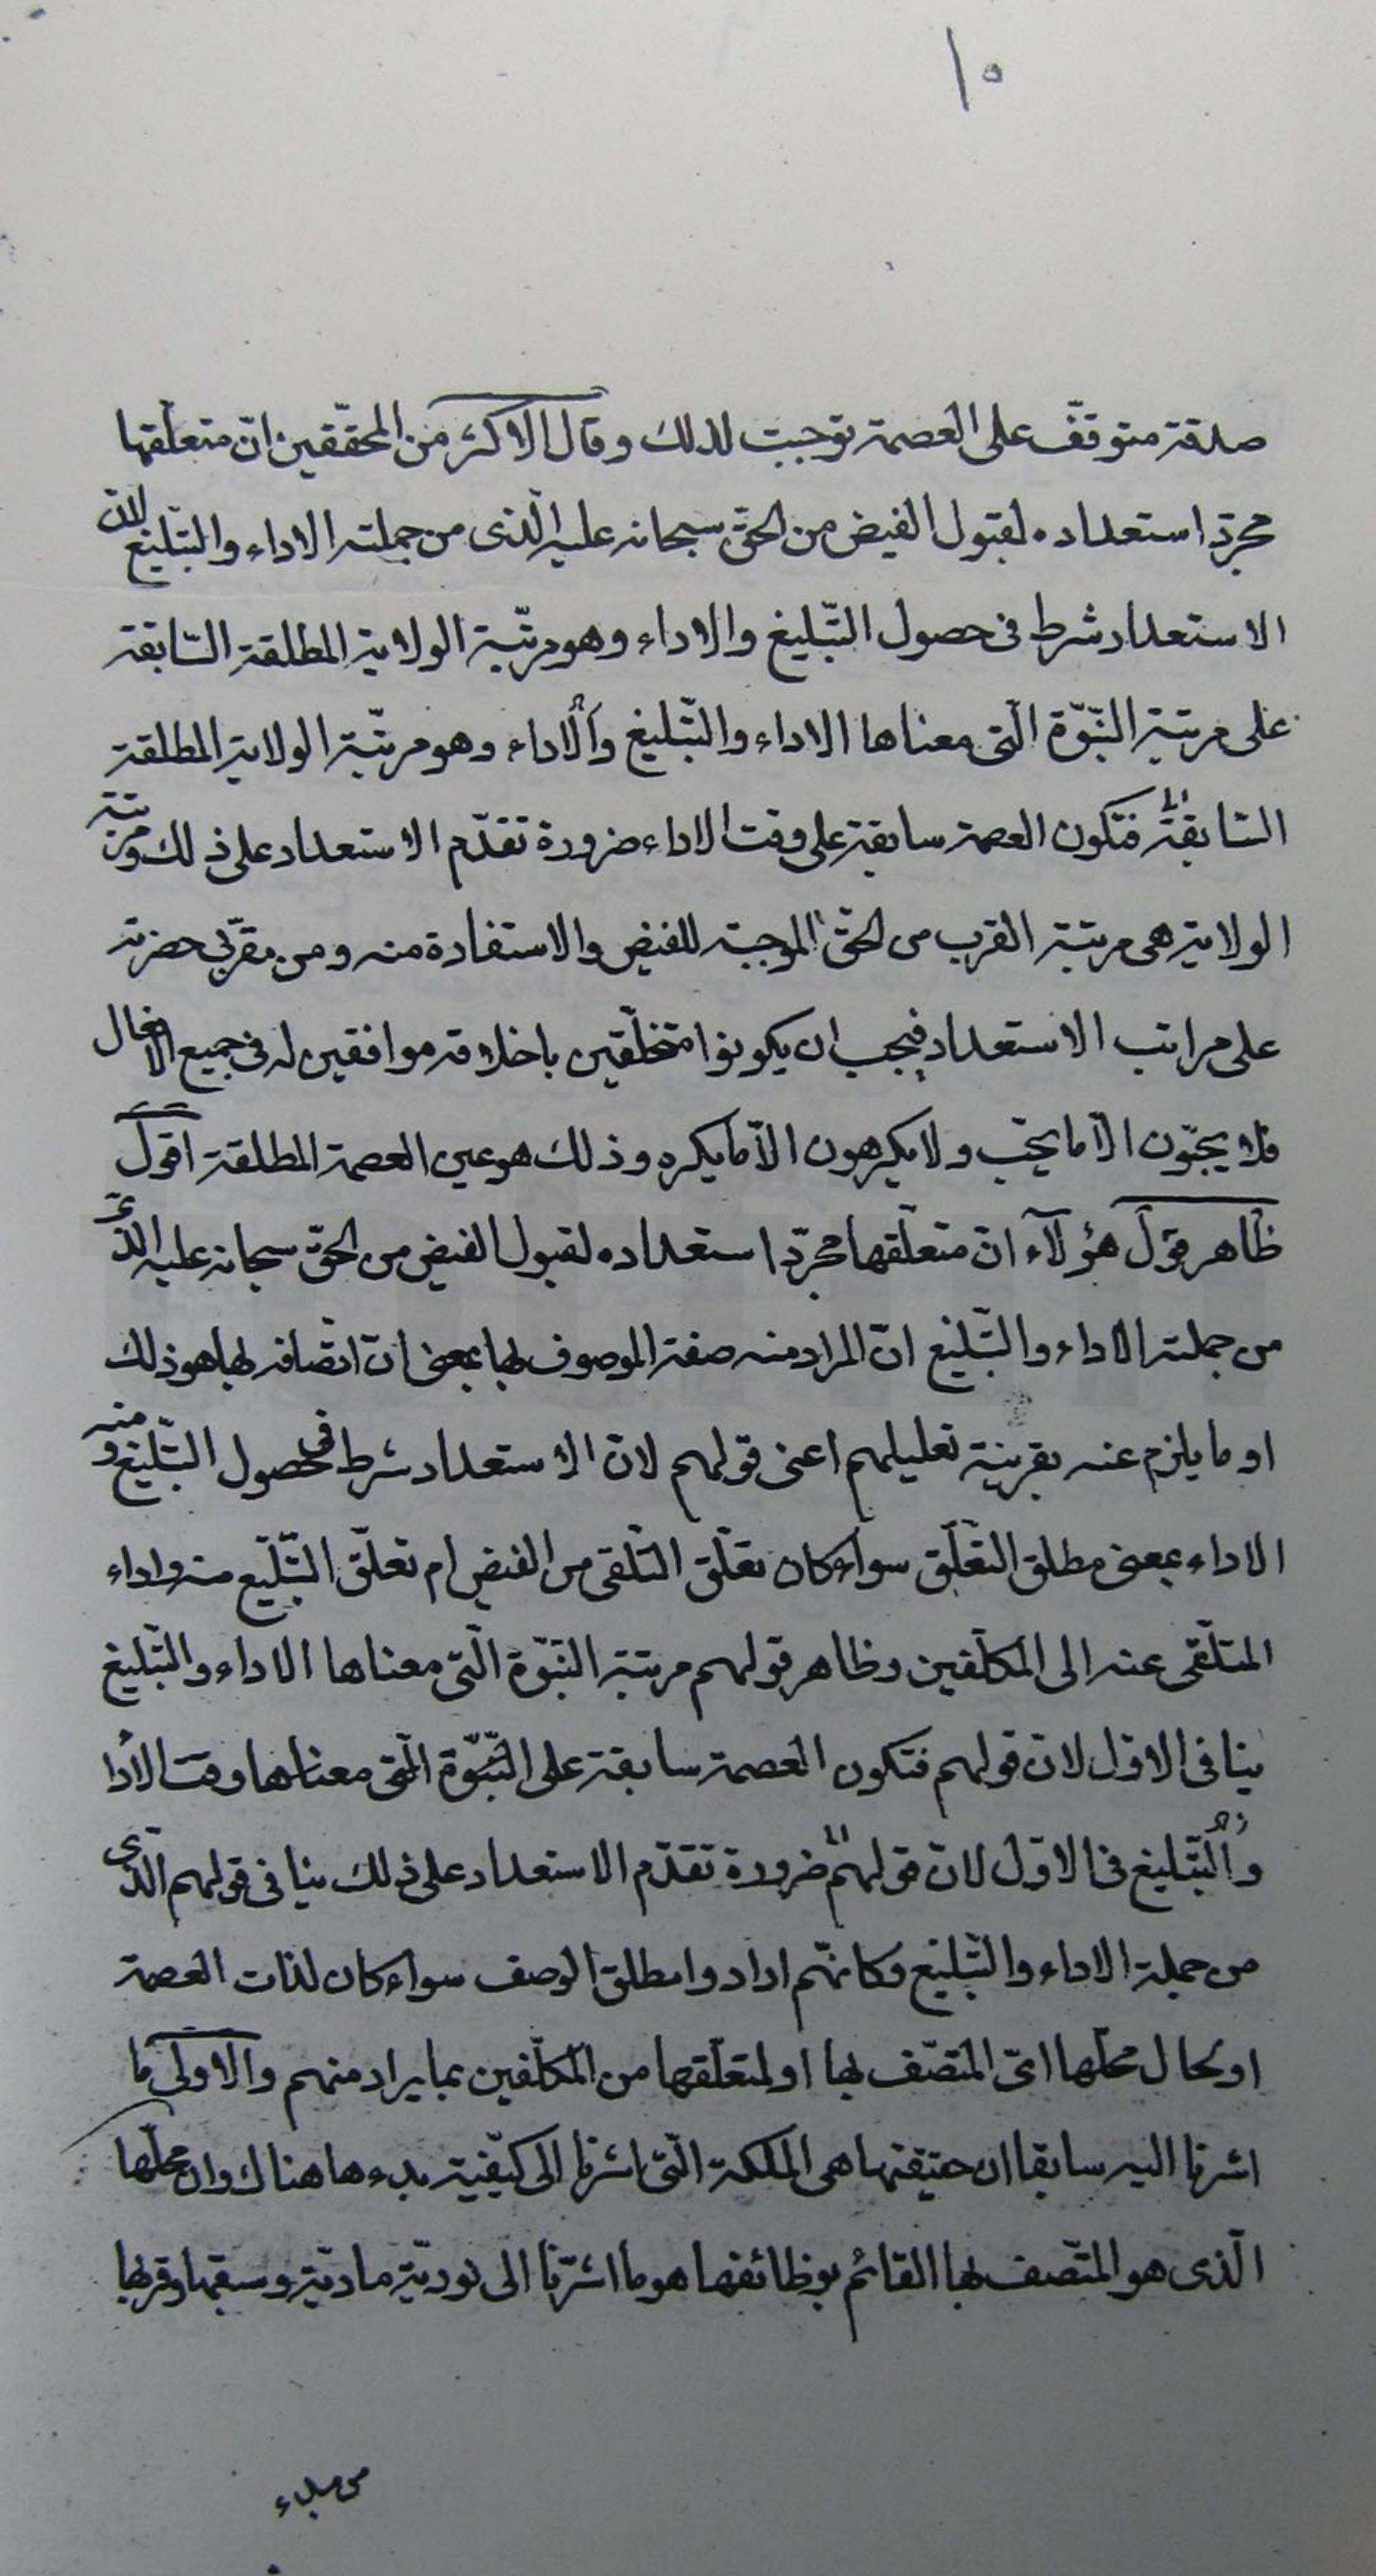 ١٥
صدقة متوقّف على العصمة توجبت لذلك وقال الاكثر من المحقّقين انّ متعلّقها
مجرّد استعداده لقبول الفيض من الحقّ سبحانه عليه الّذى من جملته الاداء والتبليغ لانّ
الاستعداد شرط فى حصول التّبليغ والاداء وهو مرتبة الولاية المطلقة السّابقة
على مرتبة النّبوّة الّتى معناها الاداء والتّبليغ والاداء وهو مرتبة الولاية المطلقة
السّابقة فتكون العصمة سابقة على وقت الاداء ضرورة تقدّم الاستعداد على ذلك ومرتبة
الولاية هى مرتبة القرب من الحقّ الموجبة للفيض والاستفادة منه ومن مقرّبى حضرته
على مراتب الاستعداد فيجب ان يكونوا متخلّقين باخلاقه موافقين له فى جميع الافعال
فلا يحبّون الّا ما يحبّ ولا يكرهون الّا ما يكره وذلك هو عين العصمة المطلقة اقول
ظاهر قول هؤلآء انّ متعلّقها مجرّد استعداده لقبول الفيض من الحقّ سبحانه عليه الّذى
من جملته الاداء والتّبليغ انّ المراد منه صفة الموصوف بها بمعنى انّ اتّصافه بها هو ذلك
او ما يلزم عنه بقرينة تعليلهم اعنى قولهم لانّ الاستعداد شرط فى حصول التّبليغ منه و
الاداء بمعنى مطلق التّعلّق سواء كان تعلّق التّلقى من الفيض ام تعلّق التّبليغ منه واداء
المتلّقى عنه الى المكلّفين وظاهر قولهم مرتبة النّبوّة الّتى معناها الاداء والتّبليغ
ينافى الاوّل لانّ قولهم فتكون العصمة سابقة على النّبوّة الّتى معناها وقت الأدا
والتّبليغ فى الاوّل لانّ قولهم ضرورة تقدّم الاستعداد على ذلك ينافى قولهم الّذى
من جملة الاداء والتّبليغ وكانّهم ارادوا مطلق الوصف سواء كان لذات العصمة
او لحال محلّها اى المتّصف بها او لمتعلّقها من المكلّفين بما يراد منهم والاولى ما
اشرنا اليه سابقا ان حقيقتها هى الملكة الّتى اشرنا الى كيفيّة بدءها هناك وان محلّها
الّذى هو المتّصف بها القائم بوظائفها هو ما اشرنا الى نوريّة مادّيّته وسبقها وقربها
من مبدء